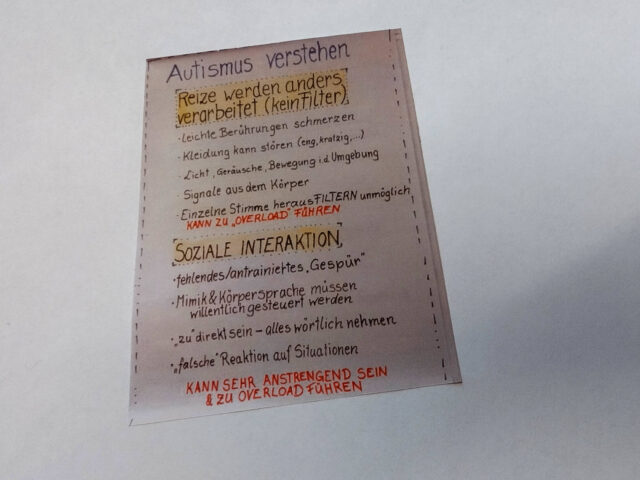 Autismus verstehen
Reize werden anders
verarbeitet (kein Filter)
· Leichte Berührungen schmerzen
· Kleidung kann stören (eng, kratzig,...)
· Licht, Geräusche, Bewegung i.d Umgebung
Signale aus dem Körper
· Einzelne Stimme heraus FILTERN unmöglich
KANN ZU „OVERLOAD" FÜHREN
SOZIALE INTERAKTION
· fehlendes/antrainiertes „Gespür"
· Mimik & Körpersprache müssen
willentlich gesteuert werden
· „zu" direkt sein – alles wörtlich nehmen
· „falsche" Reaktion auf Situationen
KANN SEHR ANSTRENGEND SEIN
& ZU OVERLOAD FÜHREN